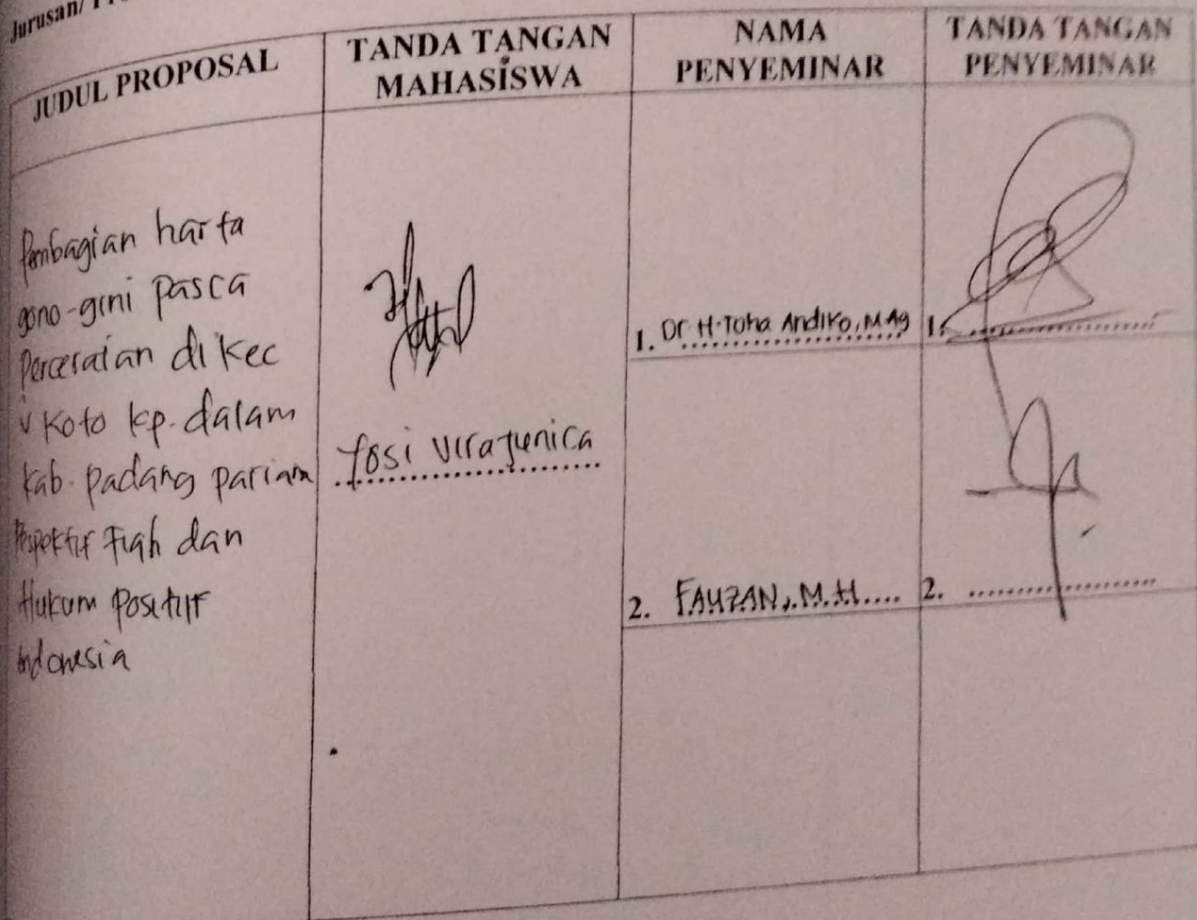 Jurusan/
JUDUL PROPOSAL
TANDA TANGAN
MAHASISWA
NAMA
PENYEMINAR
TANDA TANGAN
PENYEMINAR
Pembagian harta
gono-gini pasca
perceraian di kec
V Koto kp. dalam
kab. padang pariam
Perspektif Fiqh dan
Hukum Positif
Indonesia
Yosi Virajunica
1. Dr. H. Toha Andiko, M.Ag
1.
2. FAUZAN, M.H
2.